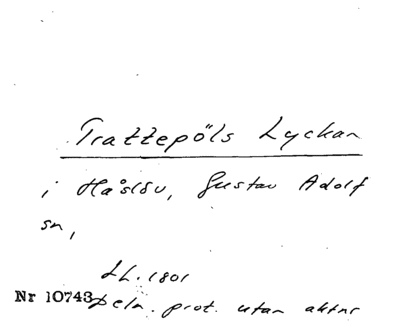 Trattepöls Lyckan
i Håslöv, Gustav Adolf
sn,
LL. 1801
Nr 10743 deln. prot. utan aktnr